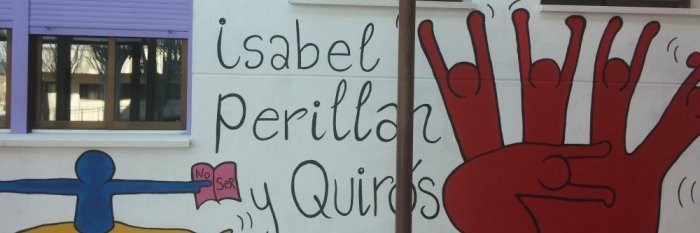 isabel
Perillan
y Quirós
NO SER